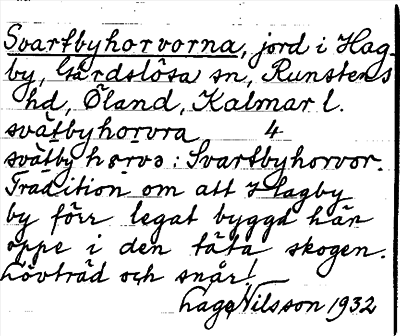 Svartbyhorvorna, jord i Hag-
by, Gärdslösa sn, Runstens
hd, Öland, Kalmar l.
svät̲byho̲rvra 4
svät̲by hərvə : Svartbyhorvor.
Tradition om att Hagby
by förr legat byggd här
oppe i den täta skogen.
Lövträd och snår!
Lage Nilsson 1932